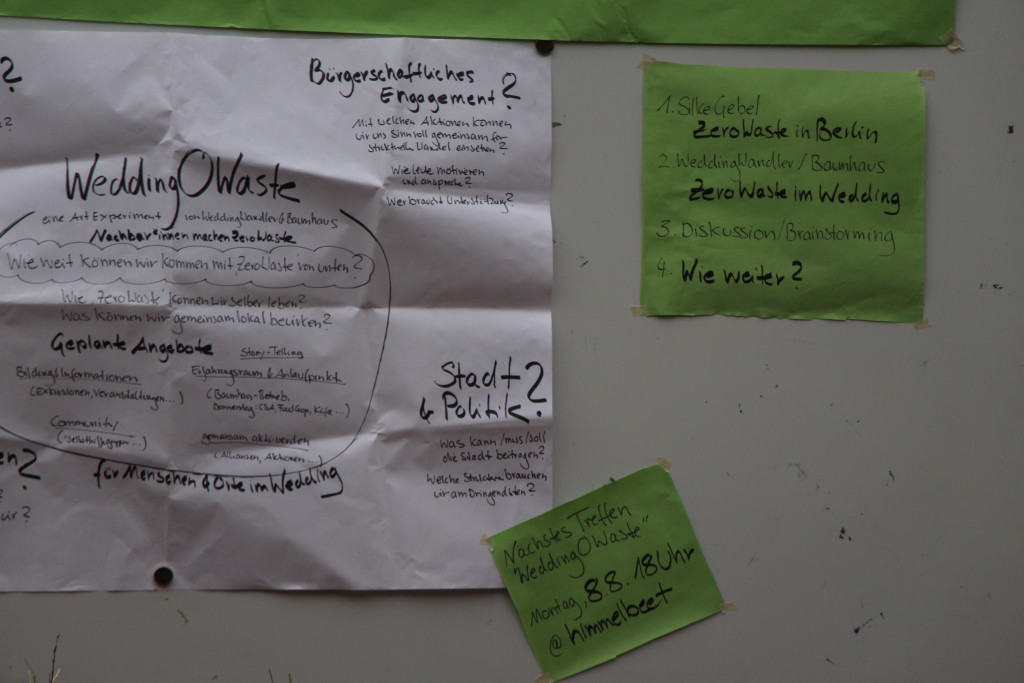 ?
Bürgerschaftliches
Engagement?
Mit welchen Aktionen können
wir uns sinnvoll gemeinsam für
strukturellen Wandel einsetzen?
Wie Leute motivieren
und ansprechen?
Wer braucht Unterstützung?
Wedding0Waste
eine Art Experiment von WeddingWandler & Baumhaus
Nachbar*innen machen ZeroWaste
Wie weit können wir kommen mit ZeroWaste 'von unten'?
Wie "ZeroWaste" können wir selber leben?
Was können wir gemeinsam lokal bewirken?
Geplante Angebote
Story-Telling
Bildung & Informationen
(Exkursionen, Veranstaltungen...)
Erfahrungsraum & Anlaufpunkt
(Baumhaus-Betrieb,
Donnerstag:
Community
(Selbsthilfegruppen...)
gemeinsam aktiv werden
(Allianzen, Aktionen...)
für Menschen & Orte im Wedding
en?
ür?
Stadt
& Politik?
Was kann/muss/soll
die Stadt beitragen?
Welche Strukturen brauchen
wir am Dringendsten?
1. Silke Gebel
ZeroWaste in Berlin
2. WeddingWandler/Baumhaus
ZeroWaste im Wedding
3. Diskussion/Brainstorming
4. Wie weiter?
Nächstes Treffen
"Wedding0Waste"
Montag, 8.8. 18Uhr
@himmelbeet